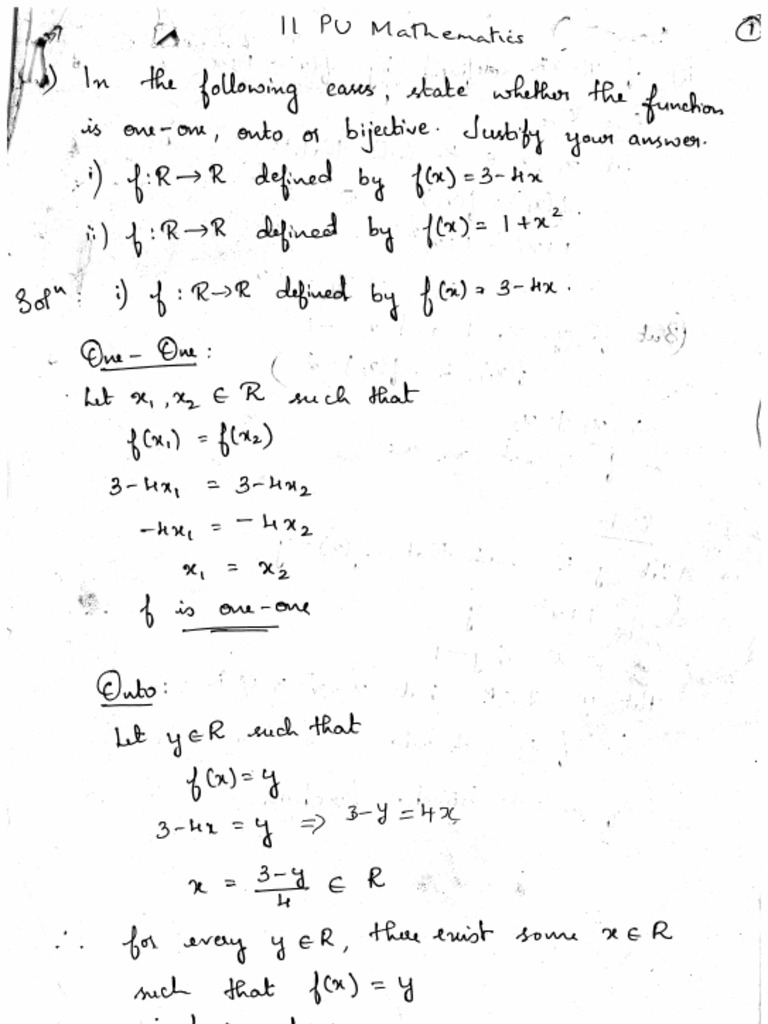 II PU Mathematics
1
1) In the following cases, state whether the function
is one-one, onto or bijective. Justify your answer.
i) f:R→R defined by f(x)=3-4x
ii) f:R→R defined by f(x)= 1+x²
Solⁿ: i) f:R→R defined by f(x)=3-4x.
One-One:
Let x₁,x₂ ∈ R such that
f(x₁) = f(x₂)
3-4x₁ = 3-4x₂
-4x₁ = -4x₂
x₁ = x₂
f is one-one
Onto:
Let y∈R such that
f(x)=y
3-4x = y ⇒ 3-y=4x
x = (3-y)/4 ∈ R
∴ for every y∈R, there exist some x∈R
such that f(x) = y